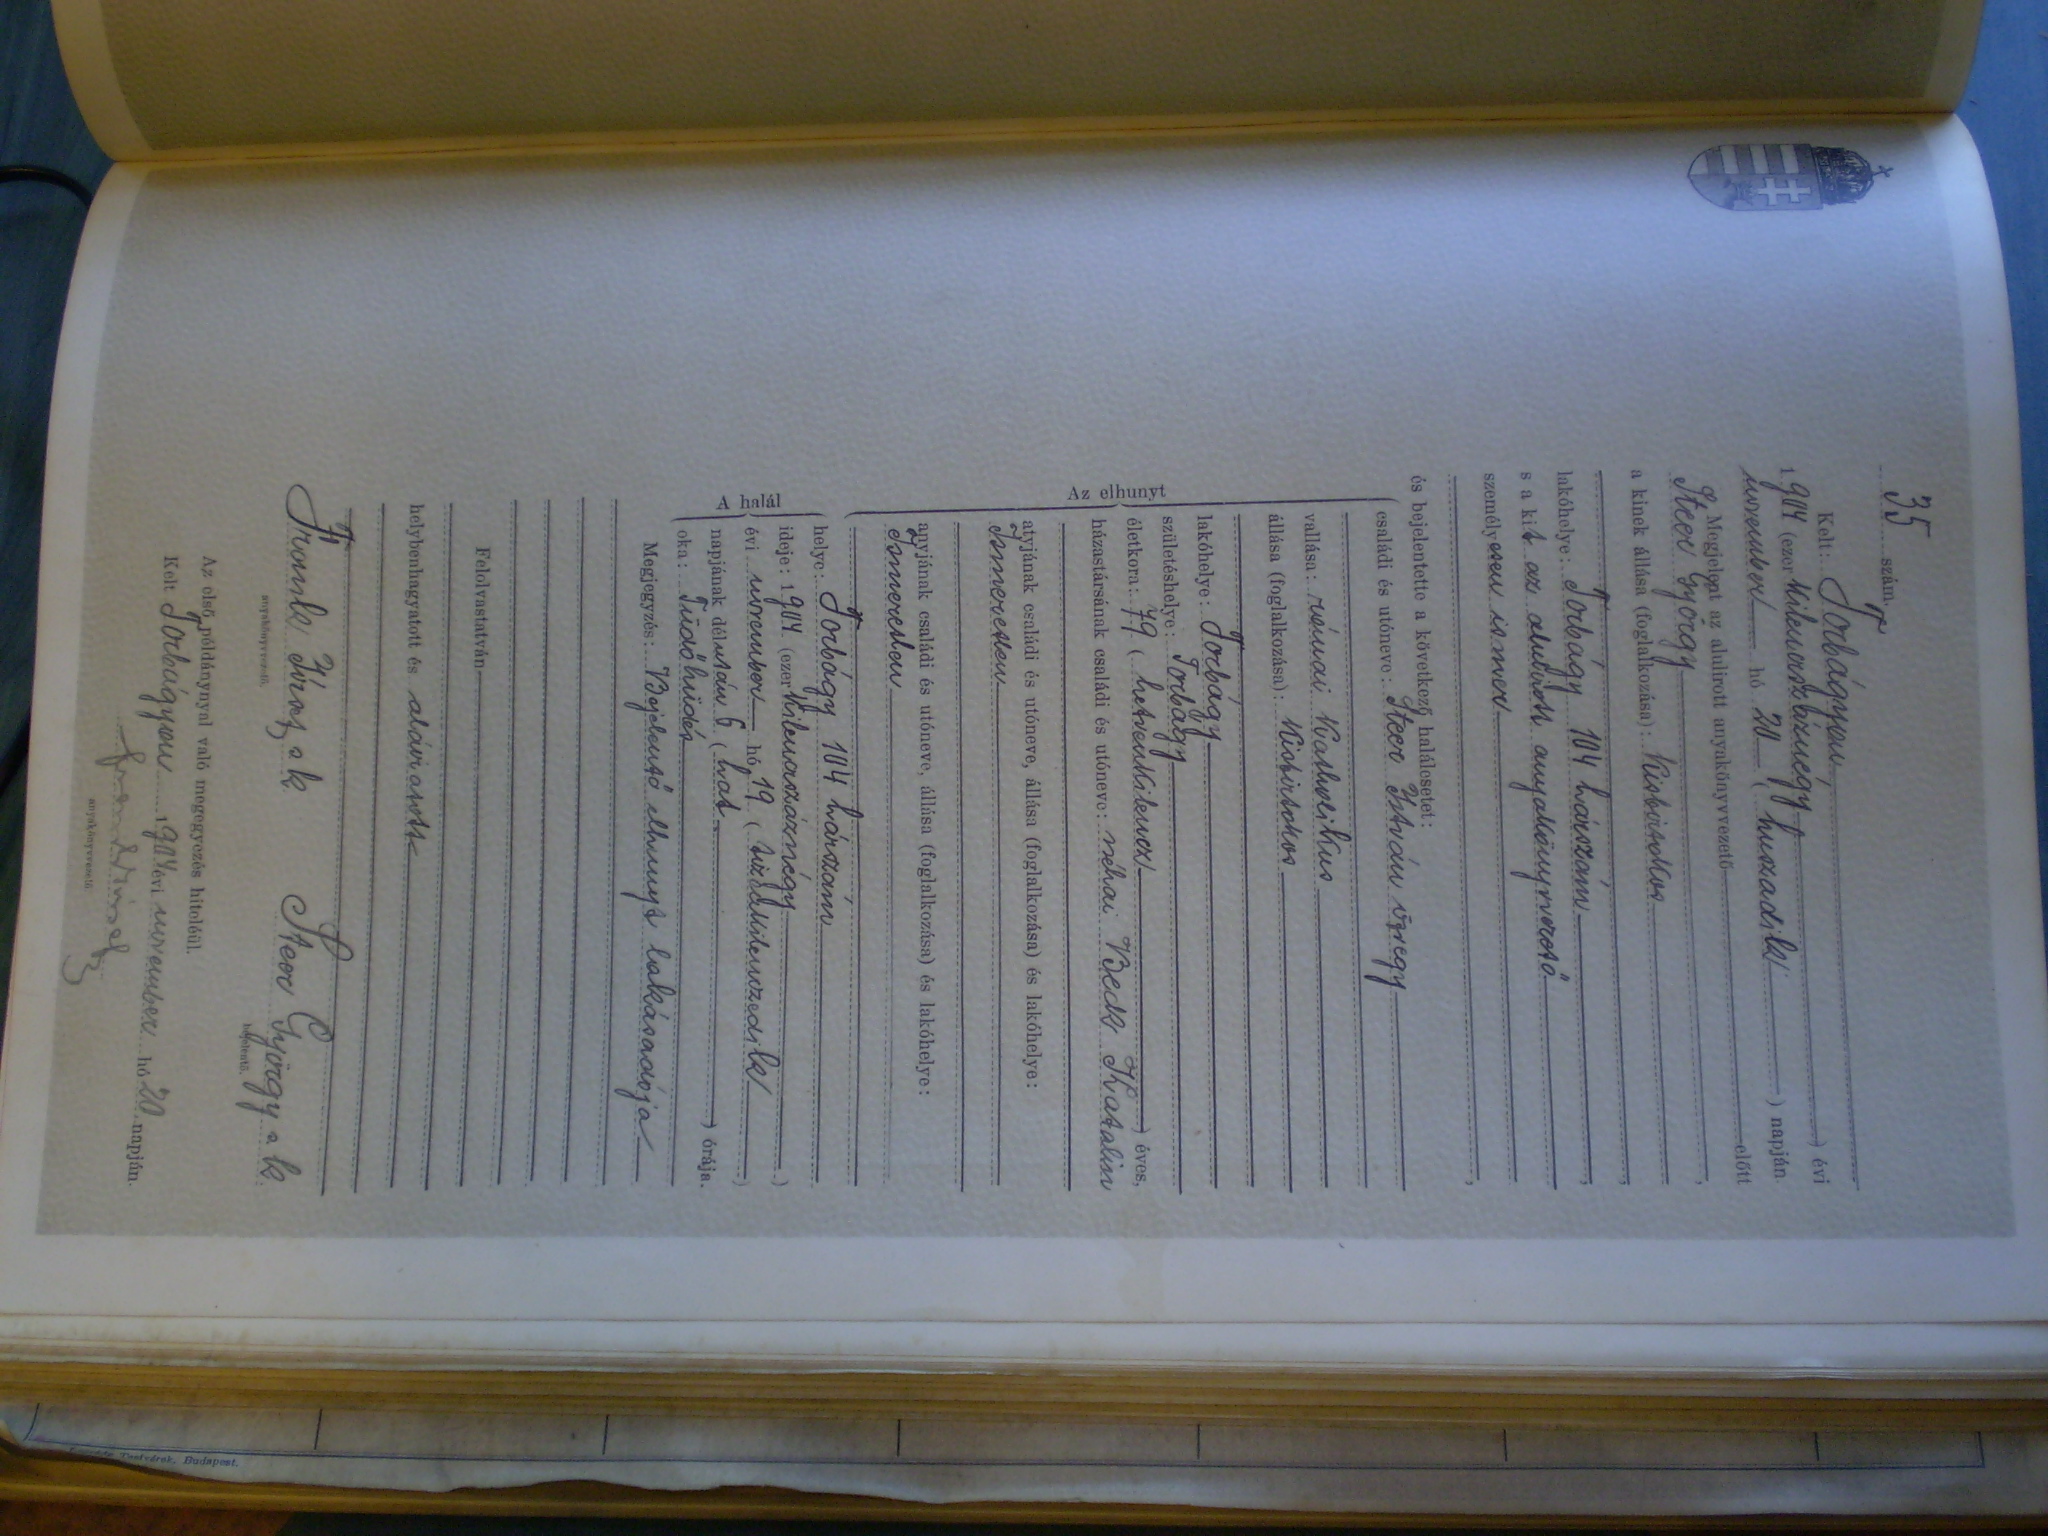 35 szám.
Kelt: Torbágyon,
1904 (ezer kilencszáznégy) évi
november hó 20 (huszadik) napján.
Megjelent az alulirott anyakönyvvezető előtt
Steer György,
a kinek állása (foglalkozása): kisbirtokos
lakóhelye: Torbágy 104 házszám,
s a kit az alulirott anyakönyvvezető
személyesen ismer,
és bejelentette a következő halálesetet:
Az elhunyt
családi és utóneve: Steer István özvegy
vallása: római katholikus
állása (foglalkozása): kisbirtokos
lakóhelye: Torbágy
születéshelye: Torbágy
életkora: 79 (hetvenkilencz) éves,
házastársának családi és utóneve: néhai Beck Katalin
atyjának családi és utóneve, állása (foglalkozása) és lakóhelye:
Ismeretlen
anyjának családi és utóneve, állása (foglalkozása) és lakóhelye:
Ismeretlen
A halál
helye: Torbágy 104 házszám
ideje: 1904 (ezer kilencszáznégy)
évi november hó 19 (tizenkilenczedik)
napjának délután 6 (hat) órája.
oka: Tüdőhüdés
Megjegyzés: Bejelentő elhunyt lakásadója
Felolvastatván
helybenhagyatott és aláiratott
Géza a k Steer György a k.
anyakönyvvezető. bejelentő.
Az első példánynyal való megegyezés hiteléül.
Kelt Torbágyon 1904 évi november hó 20 napján.
anyakönyvvezető
Testvérek, Budapest.